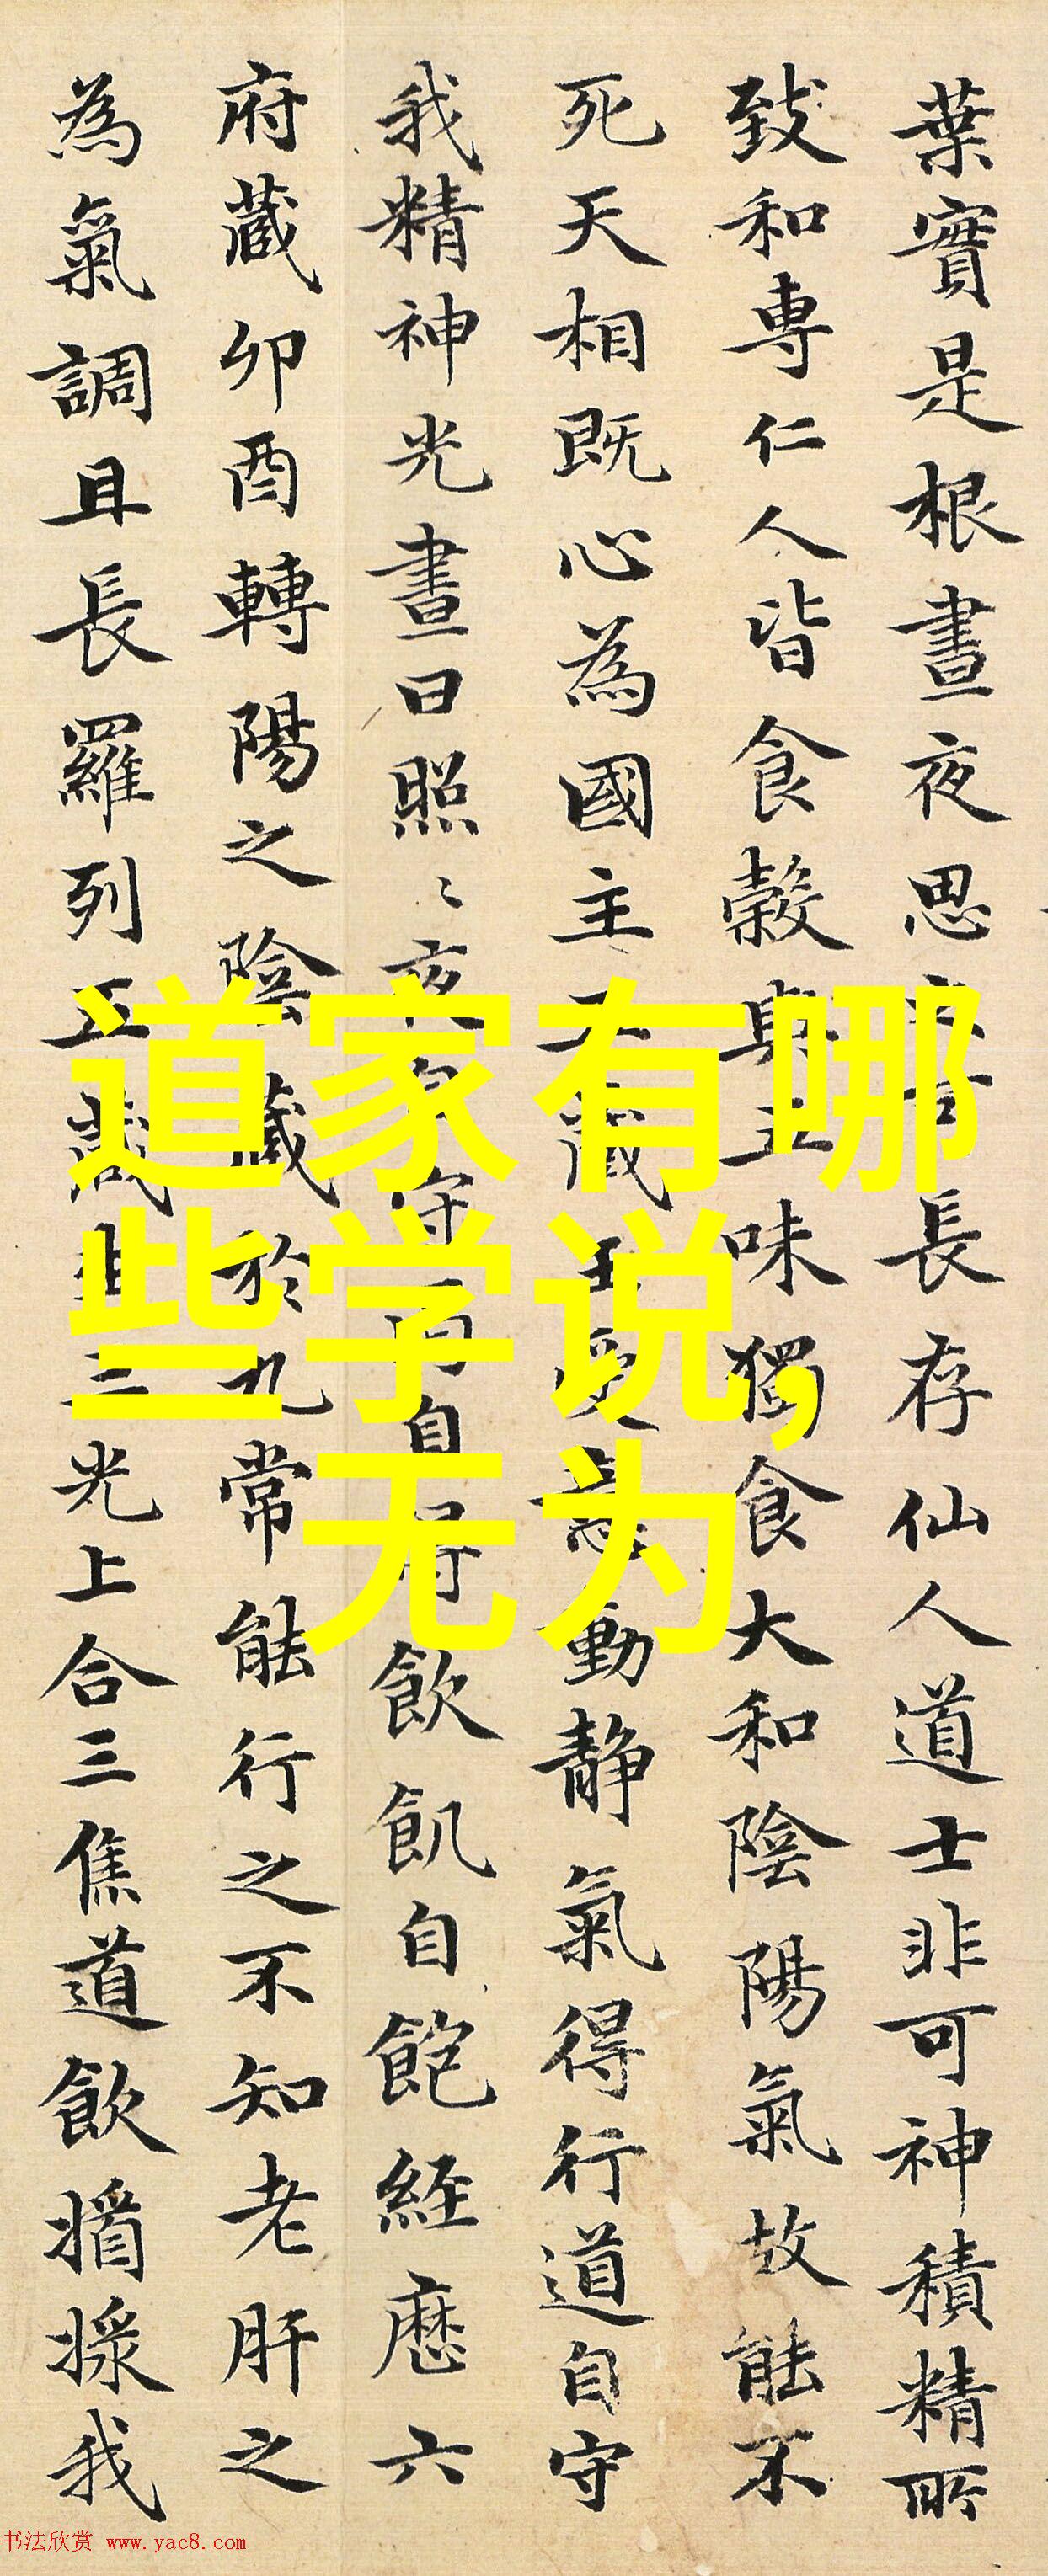 葉實是根晝夜思長存仙人道士非可神積精所
致和專仁人皆食穀與五味獨食大和陰陽氣故能不
死天相既心為國主五藏王受意動靜氣得行道自守
我精神光晝日照〻夜自守渴自得飲飢自飽經歷六
府藏卯酉轉陽之陰藏於九常能行之不知老肝之
為氣調且長羅列五藏生三光上合三焦道飲我
道家有哪
些学说,
无为
书法欣赏 www.yac8.com